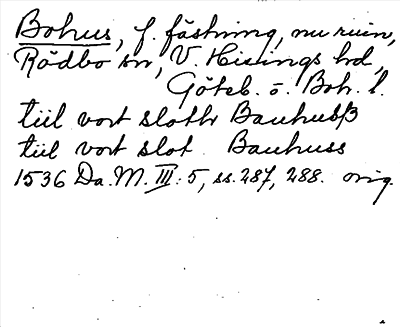 Bohus, f. fästning, nu ruin,
Rödbo sn, V. Hisings hd,
Göteb. o. Boh. l.
tiil vort slothr Bauhusß
tiil vort slot Bauhuss
1536 Da. M. III: 5, ss. 287, 288. orig.